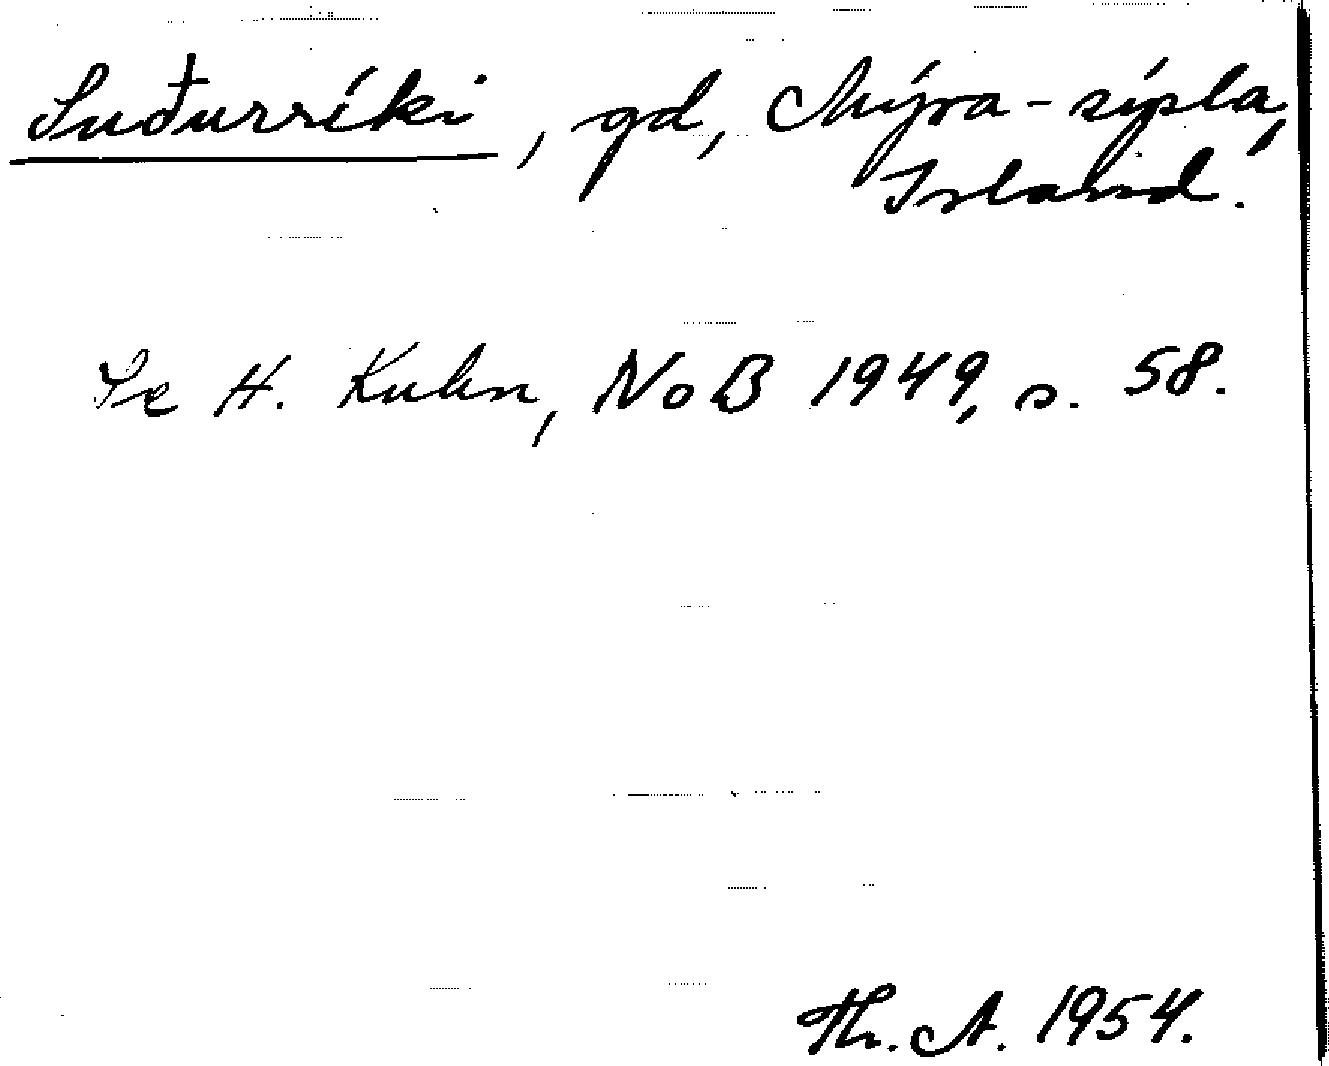 Suðurríki, gd, Mýra-sýsla,
Island.
Se H. Kuhn, NoB 1949, s. 58.
Th. A. 1954.